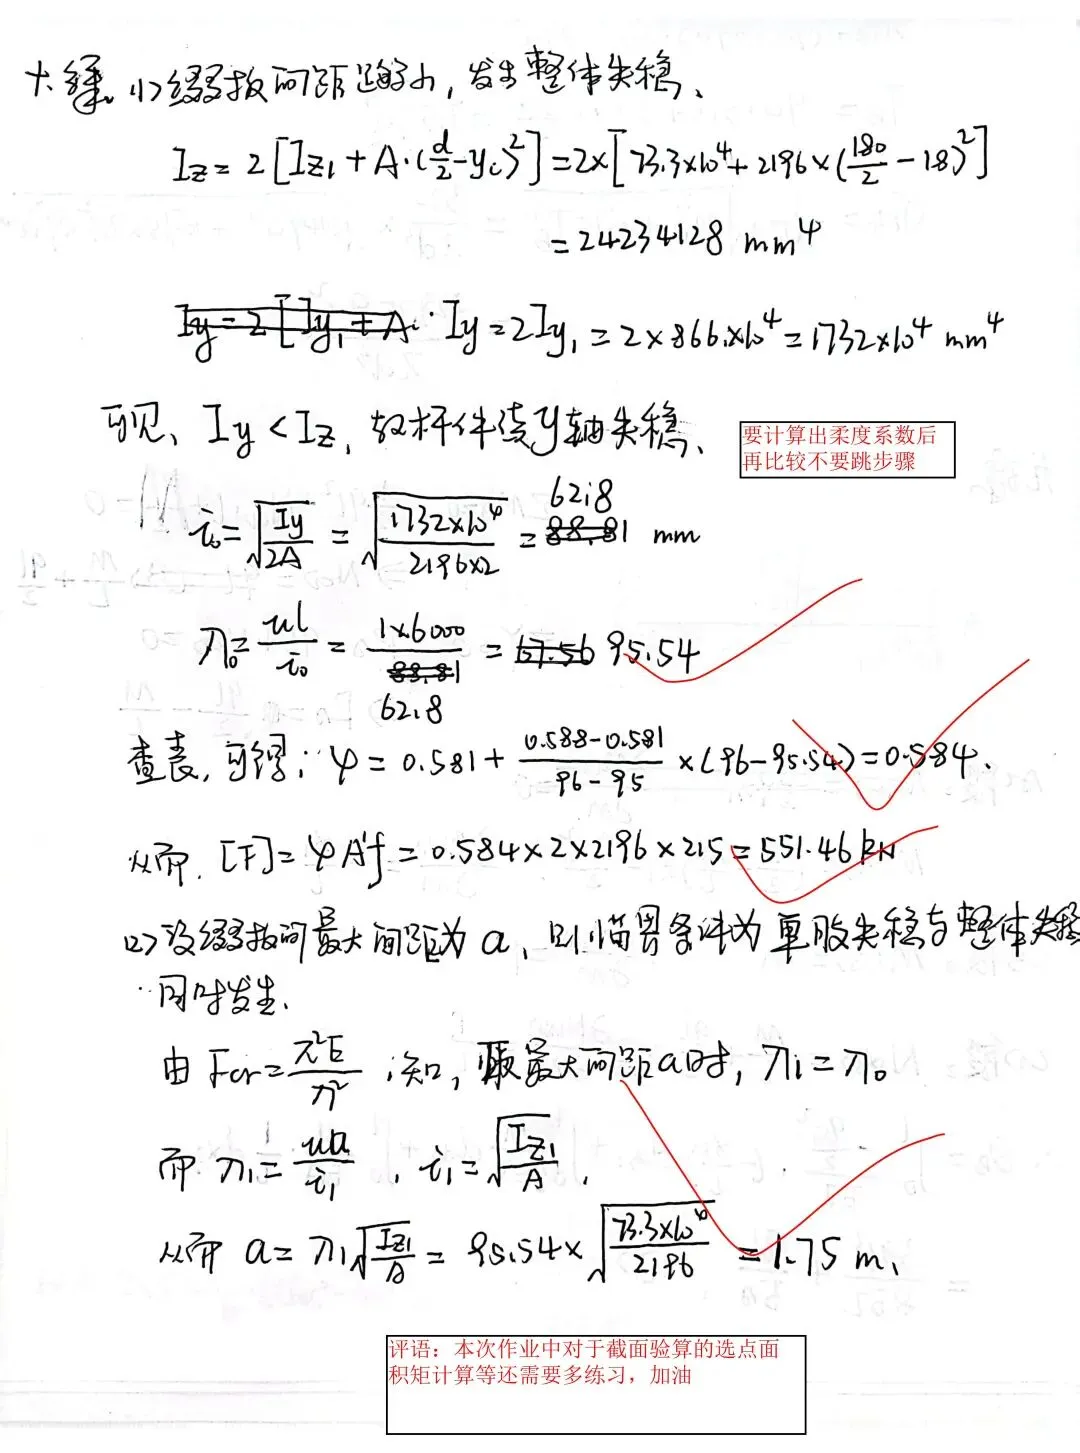 十、解. (1)缀板间距足够小, 发生整体失稳.
Iz = 2[Iz1 + A·(d/2 - yc)²] = 2×[73.3×10⁴ + 2196×(180/2 - 18)²]
= 24234128 mm⁴
Iy = 2Iy1 = 2×866×10⁴ = 1732×10⁴ mm⁴
可见, Iy < Iz, 故杆件绕y轴失稳.
要计算出柔度系数后
再比较不要跳步骤
i₀ = √(Iy/2A) = √(1732×10⁴/2196×2) = 62.8 mm
λ₀ = μl/i₀ = 1×6000/62.8 = 95.54
查表, 可得: φ = 0.581 + (0.588-0.581)/(96-95) ×(96-95.54) = 0.584.
从而. [F] = φA'f = 0.584×2×2196×215 = 551.46 kN
(2)设缀板间最大间距为 a, 则临界条件为单肢失稳与整体失稳
同时发生.
由 Fcr = π²E/λ² 知, 取最大间距a时, λ₁ = λ₀
而 λ₁ = μa/i₁ , i₁ = √(Iz1/A).
从而 a = λ₁√(Iz1/A) = 95.54×√(73.3×10⁴/2196) = 1.75 m.
评语：本次作业中对于截面验算的选点面
积矩计算等还需要多练习，加油